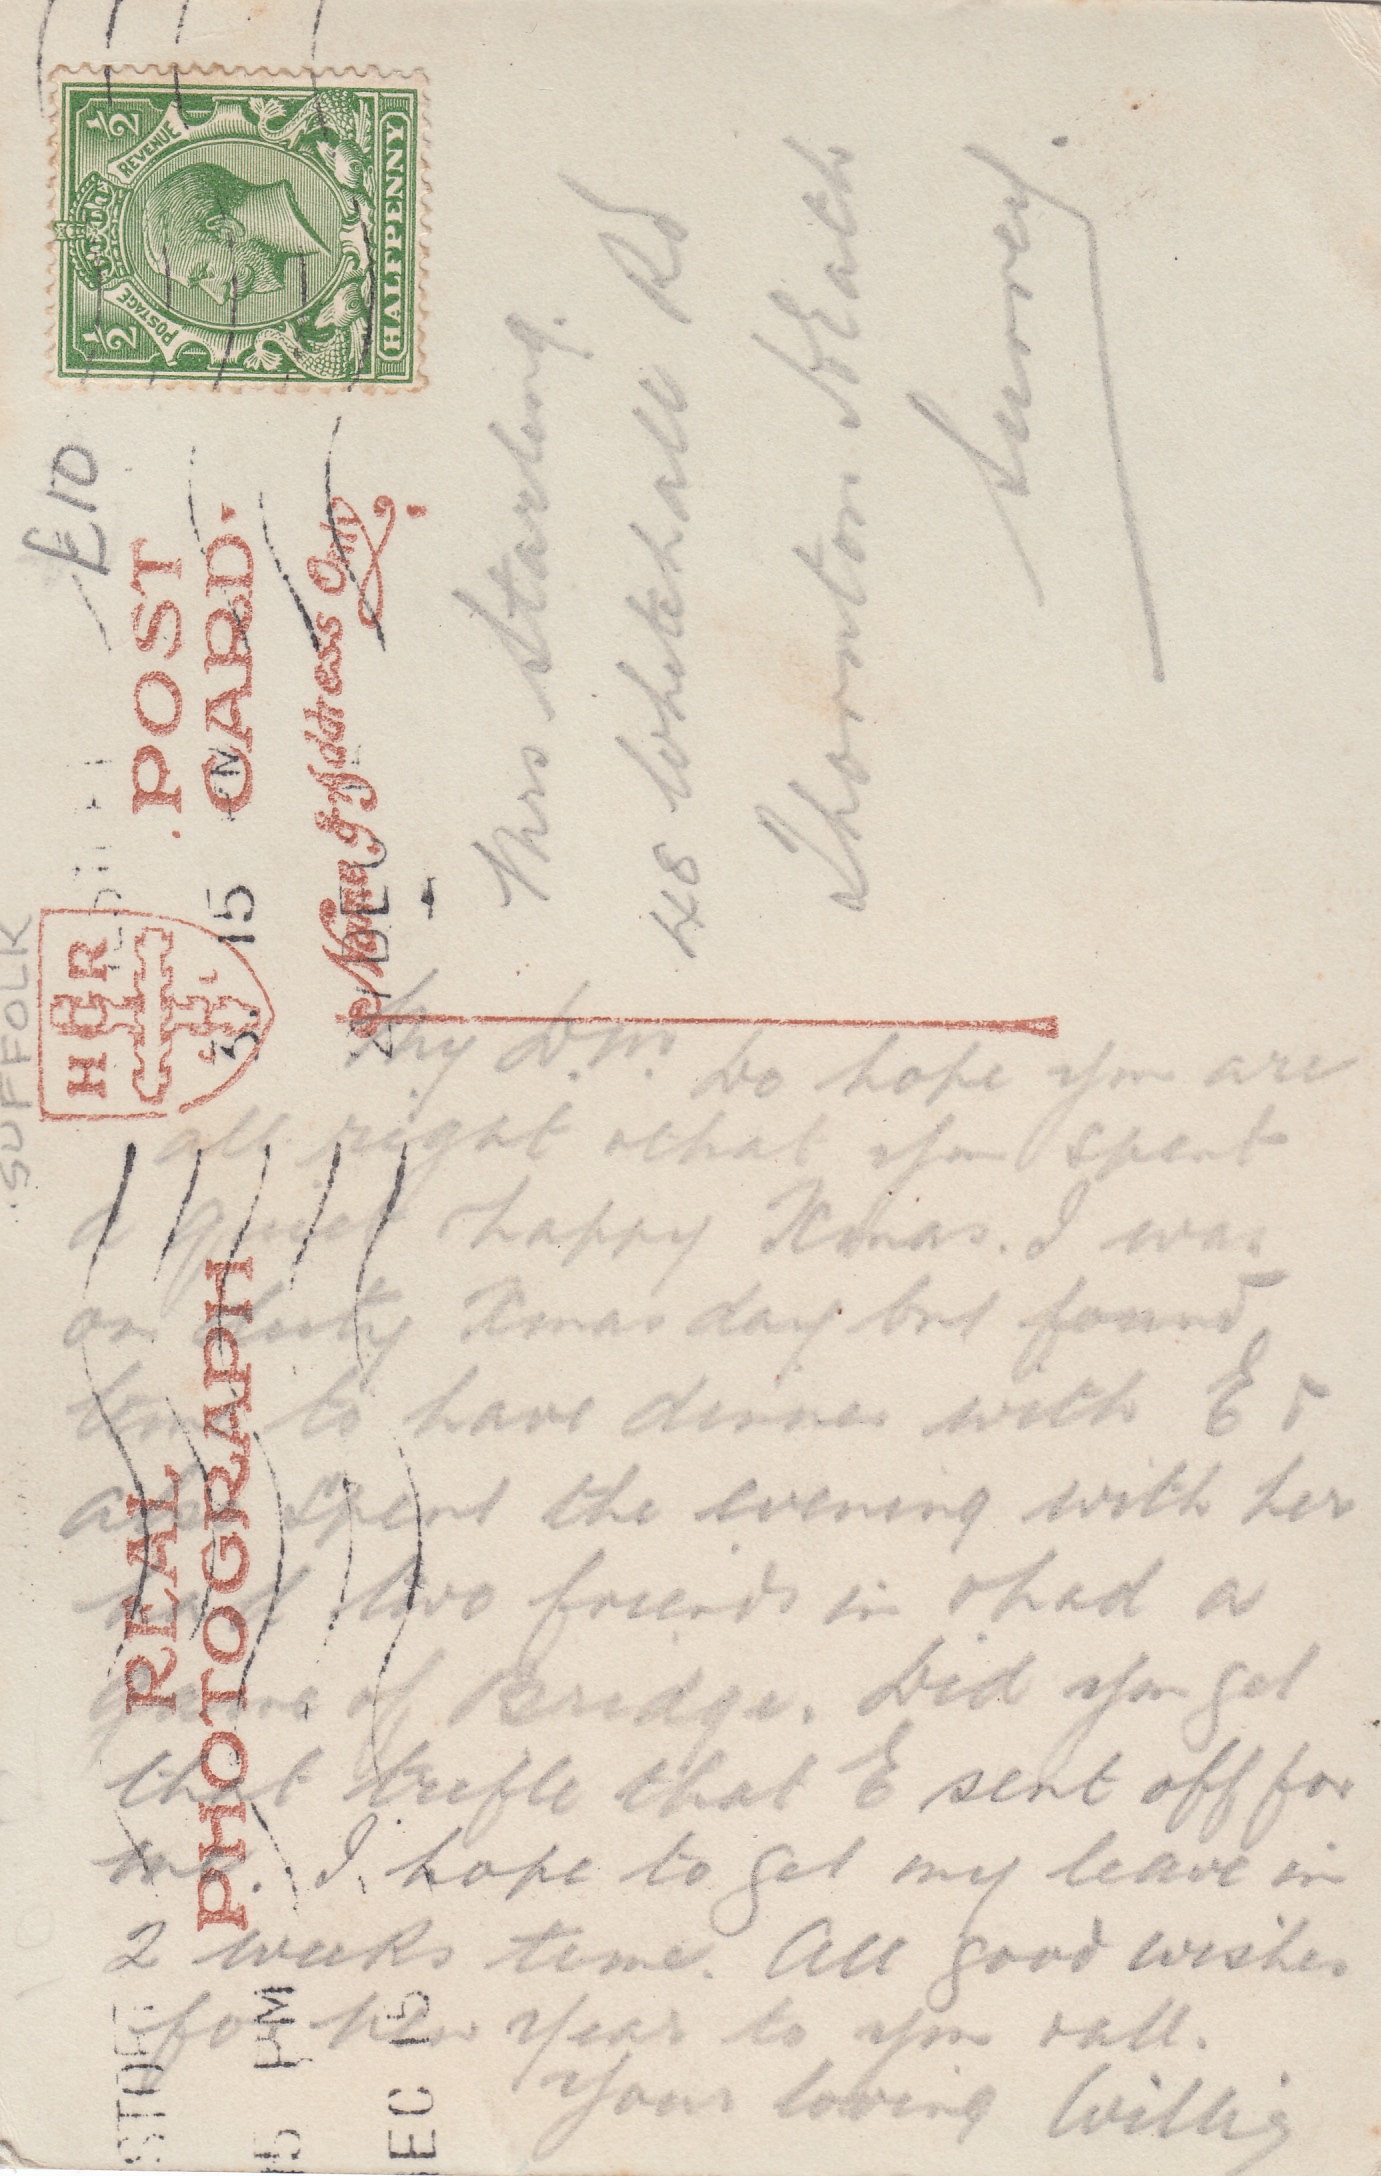 £10
SUFFOLK
HGR
REAL
PHOTOGRAPH
POST
CARD
Name & Address Only
POSTAGE REVENUE
½ ½
HALFPENNY
3. 15 PM
DEC 15
Mrs Starling.
48 Whitehall Rd
Thornton Heath
Surrey
My D.M. Do hope you are
all right & that you spent
a quiet happy Xmas. I was
on duty Xmas day but found
time to have dinner with E &
also spent the evening with her
had two friends in & had a
game of Bridge. Did you get
that trifle that E sent off for
me. I hope to get my leave in
2 weeks time. All good wishes
for New Year to you & all.
Your loving Willie